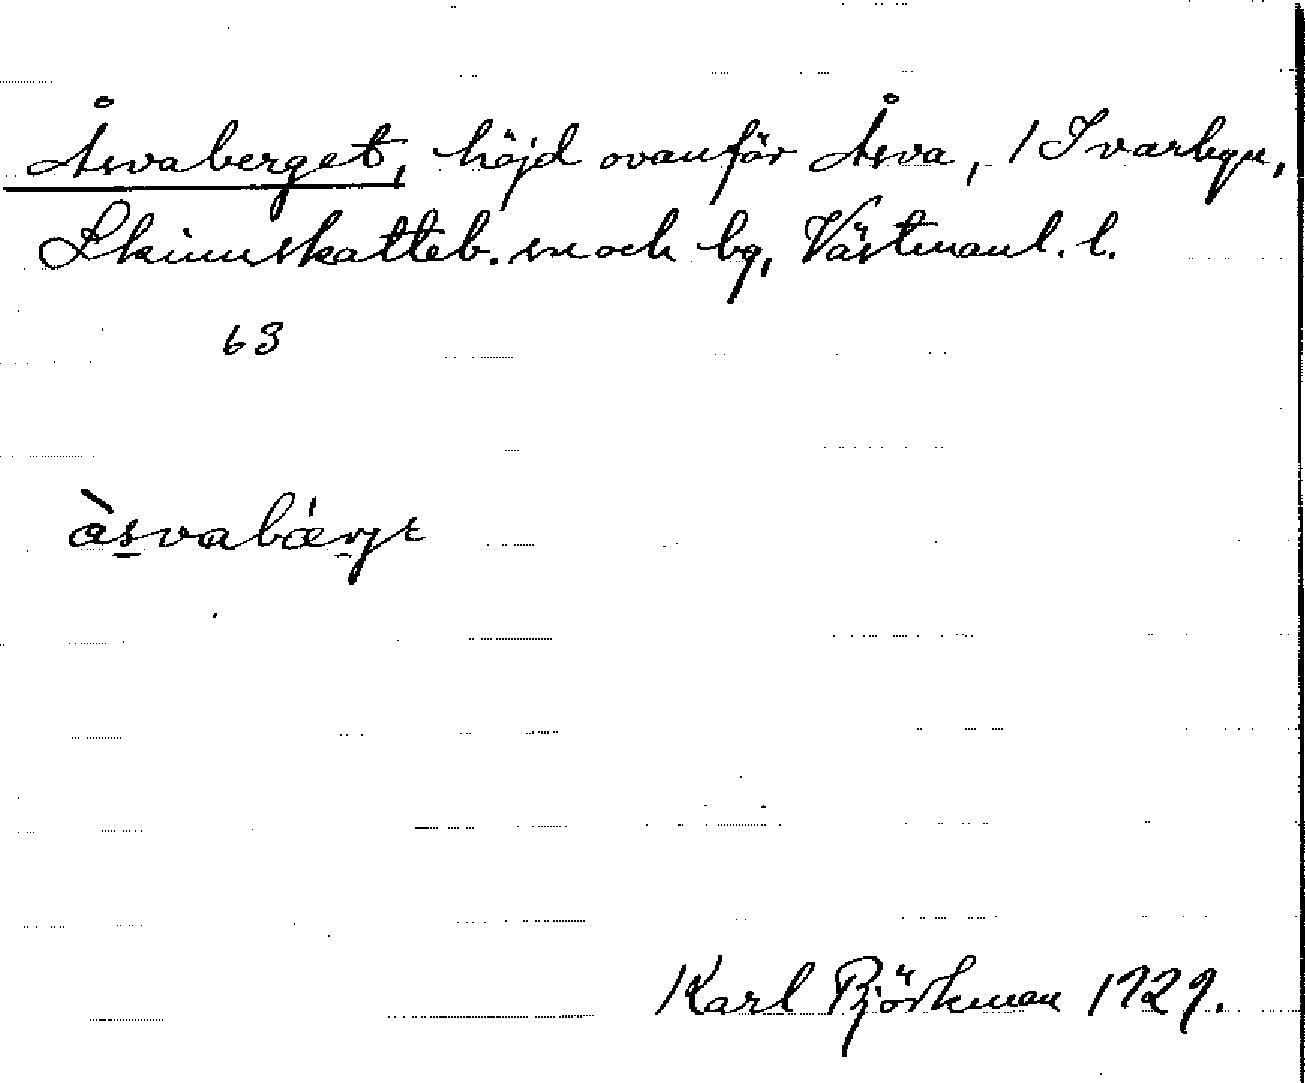 Åsvaberget, höjd ovanför Åsva, 1 Ivarbyn,
Skinnskatteb. sn och bg, Västmanl. l.
63
àsvabárjt
Karl Björkman 1929.